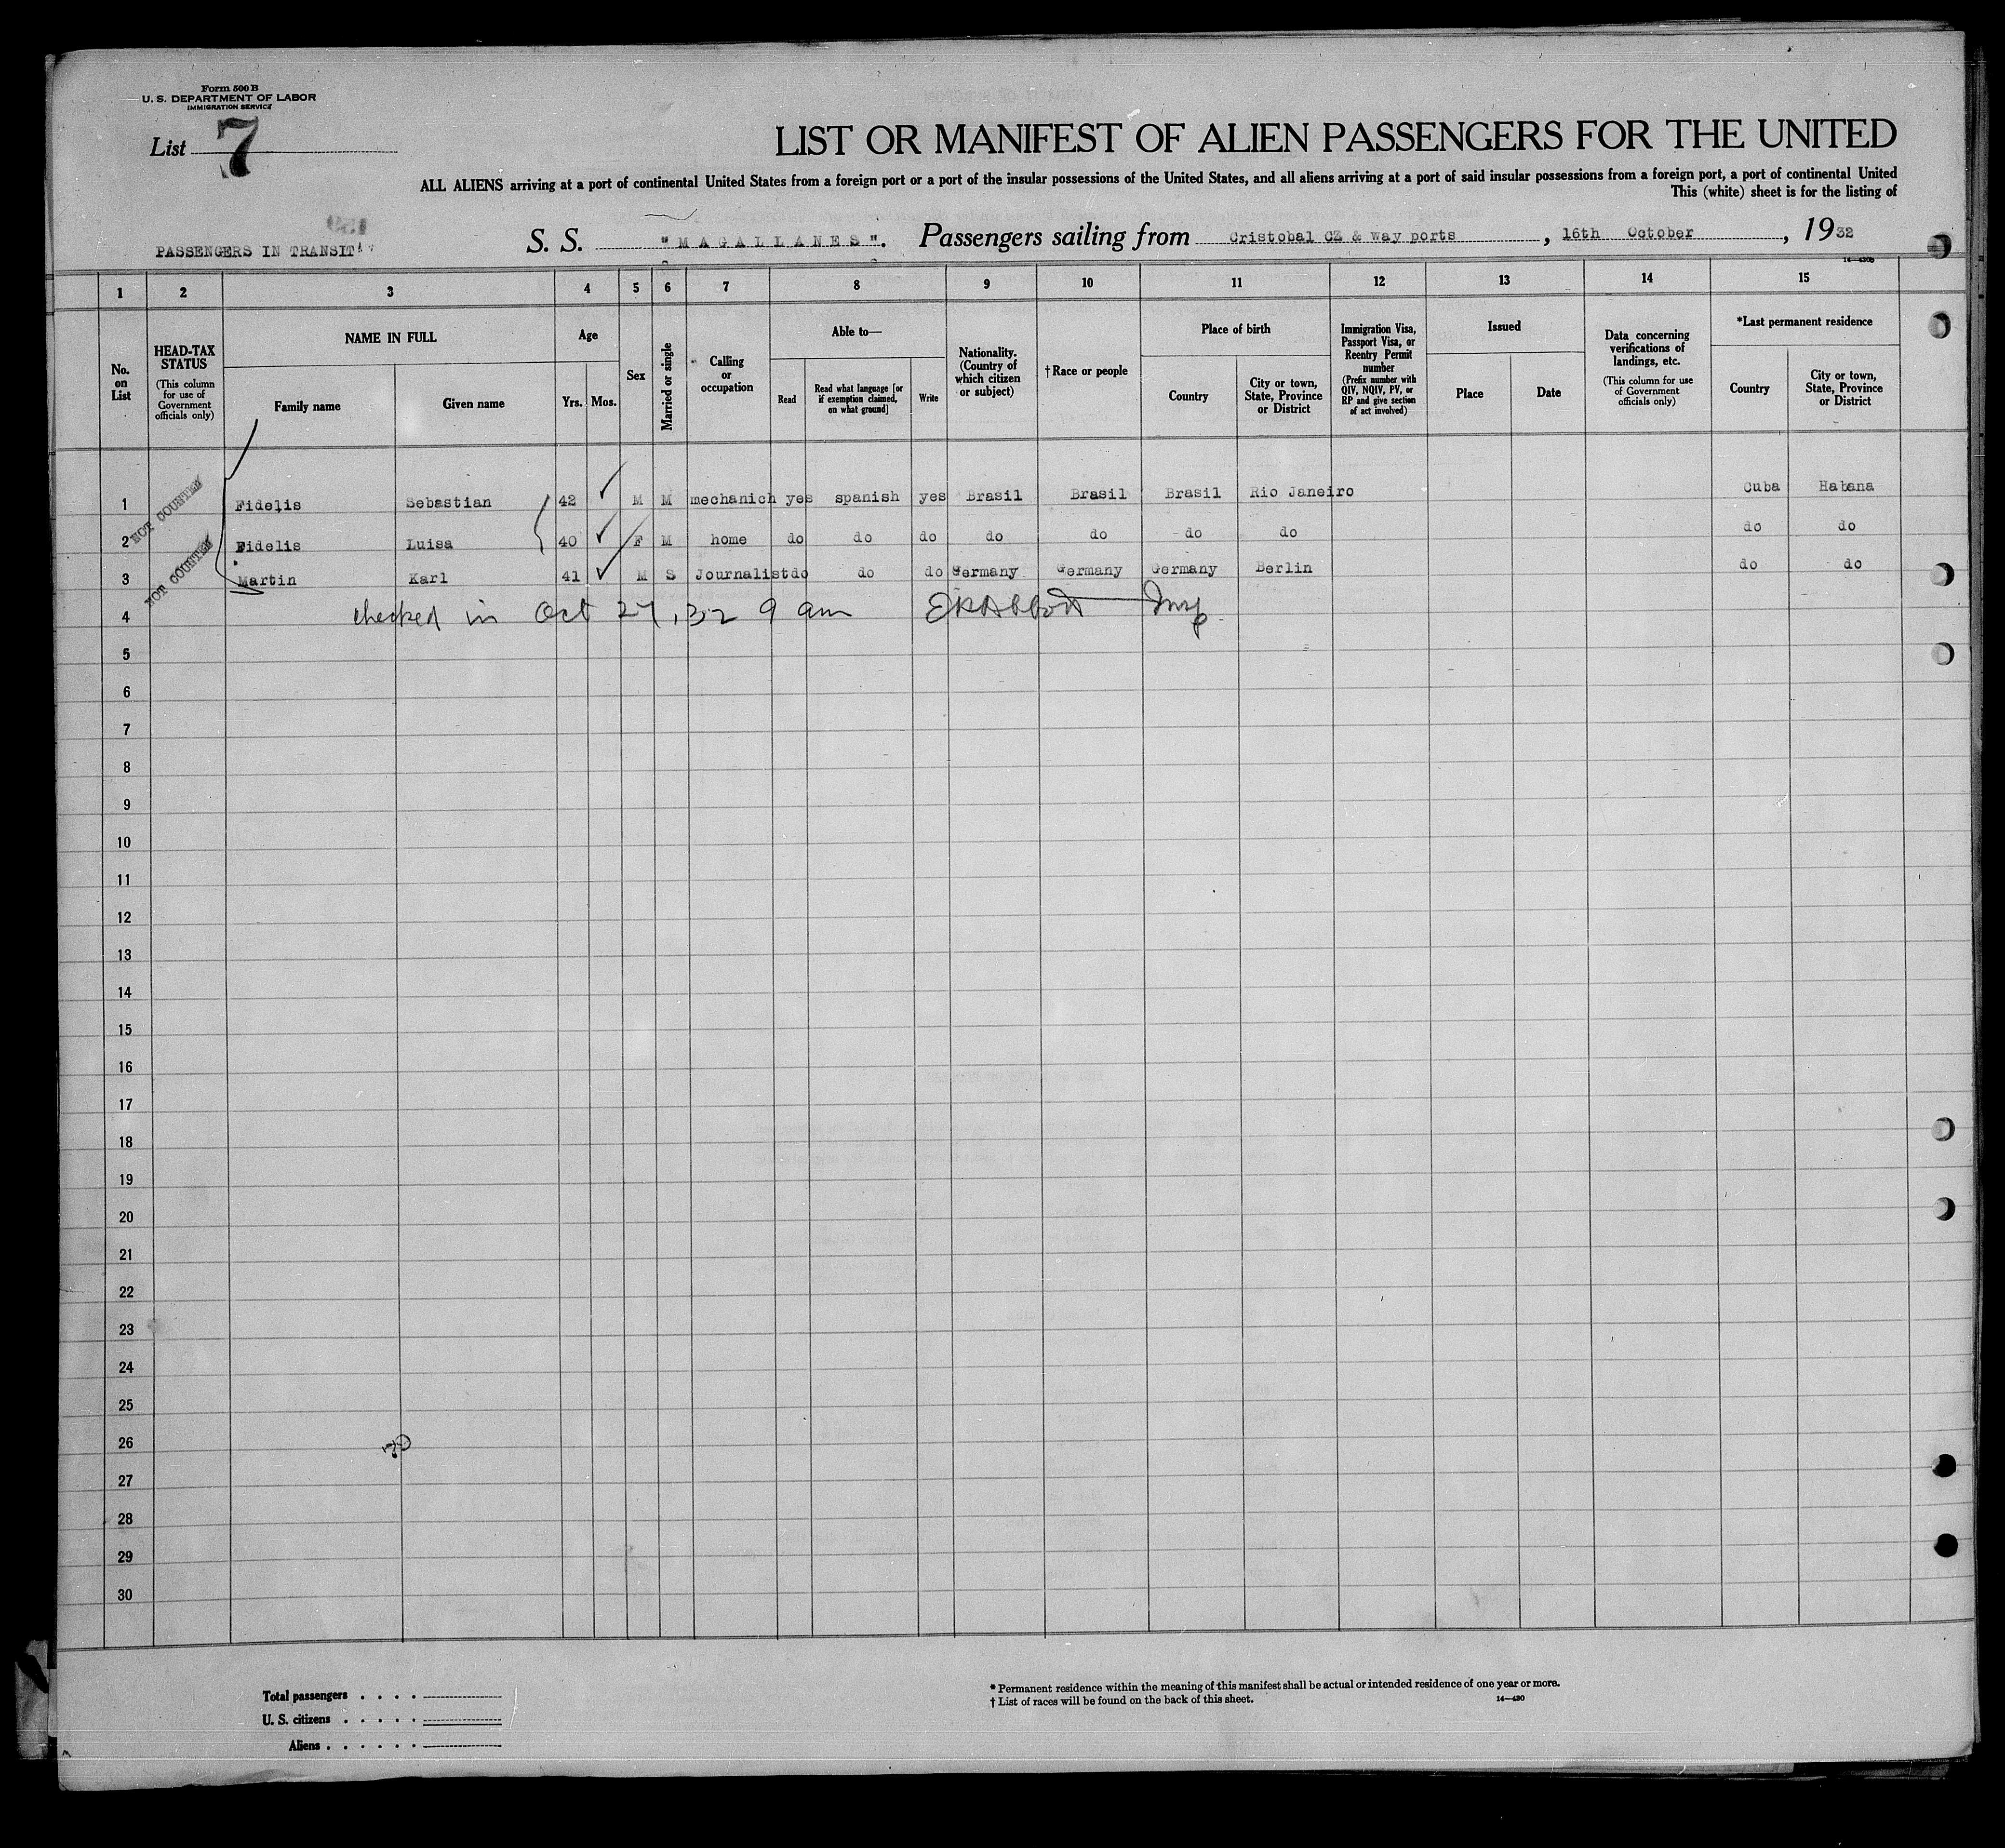 Form 500 B
U. S. DEPARTMENT OF LABOR
IMMIGRATION SERVICE
List 7
LIST OR MANIFEST OF ALIEN PASSENGERS FOR THE UNITED
ALL ALIENS arriving at a port of continental United States from a foreign port or a port of the insular possessions of the United States, and all aliens arriving at a port of said insular possessions from a foreign port, a port of continental United
This (white) sheet is for the listing of
PASSENGERS IN TRANSIT S. S. "MAGALLANES". Passengers sailing from Cristobal CZ & way ports, 16th October, 1932
1 2 3 4 5 6 7 8 9 10 11 12 13 14 15
No. on List
HEAD-TAX STATUS (This column for use of Government officials only)
NAME IN FULL
Family name Given name
Age
Yrs. Mos.
Sex
Married or single
Calling or occupation
Able to—
Read Read what language [or if exemption claimed, on what ground] Write
Nationality. (Country of which citizen or subject)
†Race or people
Place of birth
Country City or town, State, Province or District
Immigration Visa, Passport Visa, or Reentry Permit number (Prefix number with QIV, NQIV, PV, or RP and give section of act involved)
Issued
Place Date
Data concerning verifications of landings, etc. (This column for use of Government officials only)
*Last permanent residence
Country City or town, State, Province or District
NOT COUNTED
1 Fidelis Sebastian 42 M M mechanich yes spanish yes Brasil Brasil Brasil Rio Janeiro Cuba Habana
2 Fidelis Luisa 40 F M home do do do do do do do do do
NOT COUNTED
3 Martin Karl 41 M S Journalist do do do Germany Germany Germany Berlin do do
4 checked in Oct 27, 32 9 am E R Abbott Insp
5
6
7
8
9
10
11
12
13
14
15
16
17
18
19
20
21
22
23
24
25
26
27
28
29
30
Total passengers
U. S. citizens
Aliens
* Permanent residence within the meaning of this manifest shall be actual or intended residence of one year or more.
† List of races will be found on the back of this sheet. 14—430